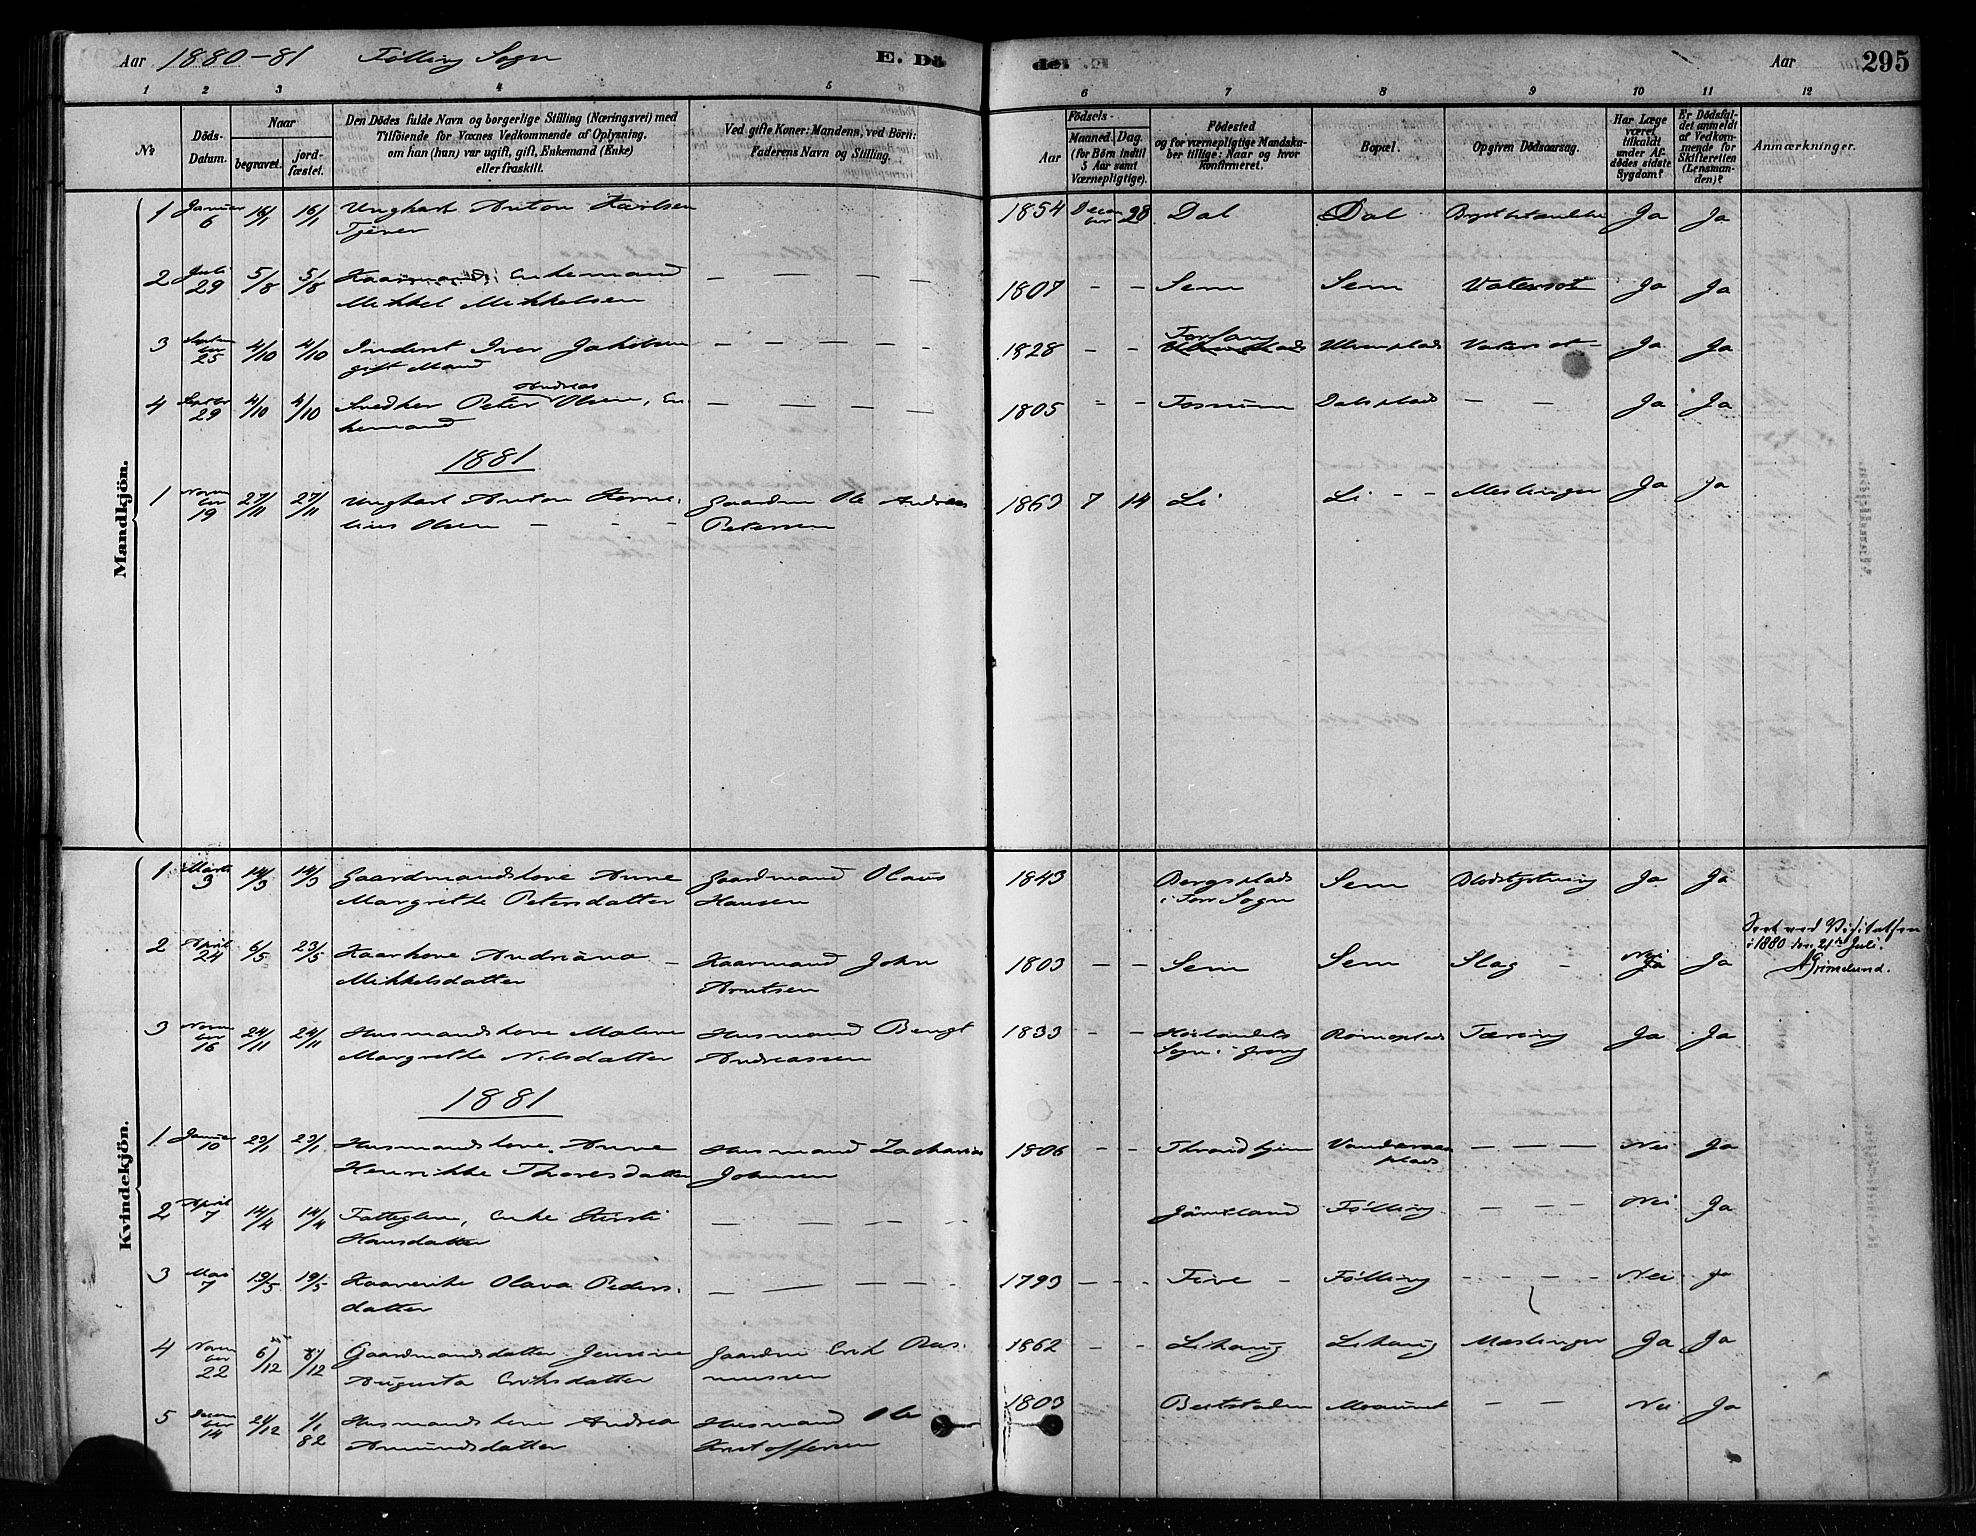 Aar 1880-81 Følling Sogn E. Dö
de. Aar 295
1 2 3 4 5 6 7 8 9 10 11 12
№ Döds-Datum. Naar begravet. jord-fæstet. Den Dödes fulde Navn og borgerlige Stilling (Næringsvei) med Tilföiende for Voxnes Vedkommende af Oplysning, om han (hun) var ugift, gift, Enkemand (Enke) eller fraskilt. Ved gifte Koner: Mandens, ved Börn: Faderens Navn og Stilling. Aar Födsels- Maaned. Dag. (for Börn indtil 5 Aar samt Værnepligtige). Födested og for værnepligtige Mandskaber tillige: Naar og hvor Konfirmeret. Bopæl. Opgiven Dödsaarsag. Har Læge været tilkaldt under Afdödes sidste Sygdom? Er Dödsfaldet anmeldt af Vedkommende for Skifteretten (Lensmanden)? Anmærkninger.
Mandkjön.
1 Januar 6 16/1 16/1 Ungkarl Anton Karlsen 1854 Decem ber 28 Dal Dal Ja Ja
Tjener
2 Juli 29 5/8 5/8 Kaarmand, Enkemand — — — — — 1807 - - Sem Sem Vatersot Ja Ja
Mikkel Mikkelsen
3 Septem ber 25 4/10 4/10 Inderst Iver Jakobsen — — — — — 1828 - - Vatersot Ja Ja
gift Mand
4 Septbr 29 4/10 4/10 Snedker Peter Andreas Olsen, En- — — — — — 1805 - - Fosnæs Dalsplads — — Ja Ja
kemand
1881
1 Novem ber 19 27/11 27/11 Ungkarl Anton Korne- Gaardm Ole Andreas 1863 7 14 Li Li - - Meslinger Ja Ja
lius Olsen - - - Petersen
Kvindekjön.
1 Marts 3 14/3 14/3 Gaardmandskone Anne Gaardmand Olaus 1843 Bergsplads Sem Blodstyrtning Ja Ja
Margrethe Petersdatter Hansen i For Sogn
2 April 24 6/5 23/5 Kaarkone Andriana - Kaarmand John 1803 - - Sem Sem Slag - Nei Ja Ja
Mikkelsdatter Arntsen
Seet ved Visitatsen
i 1880 den 21de Juli.
A Grimelund.
3 Novem ber 16 24/11 24/11 Husmandskone Malene Husmand Bengt 1833 - - Høilandets Romoplads Tæring Ja Ja
Margrethe Nilsdatter Andreassen Sogn i Grong
1881
1 Januar 10 23/1 23/1 Husmandskone Anne Husmand Zacharias 1806 - - Throndhjem — — — Nei Ja
Henrikke Thoresdatter Johnsen plads
2 April 7 14/4 14/4 Fattiglem, Enke Kirsti — — — — Jämtland Følling - - - Nei Ja
Hansdatter
3 Mai 7 19/5 19/5 Kaarenke Olava Peders- — — — - - 1793 - - - Five - Følling - - - - Nei Ja
datter
4 Novem ber 22 6/12 6/12 Gaardmandsdatter Jensine Gaardm Erik Ras- 1862 - - Lihaug Lihaug Meslinger Ja Ja
Augusta Eriksdatter mussen
5 Decem ber 14 24/12 1/1 82 Husmandskone Andrea Husmand Ole 1803 Beitstaden - - Nei Ja
Amundsdatter Kristoffersen